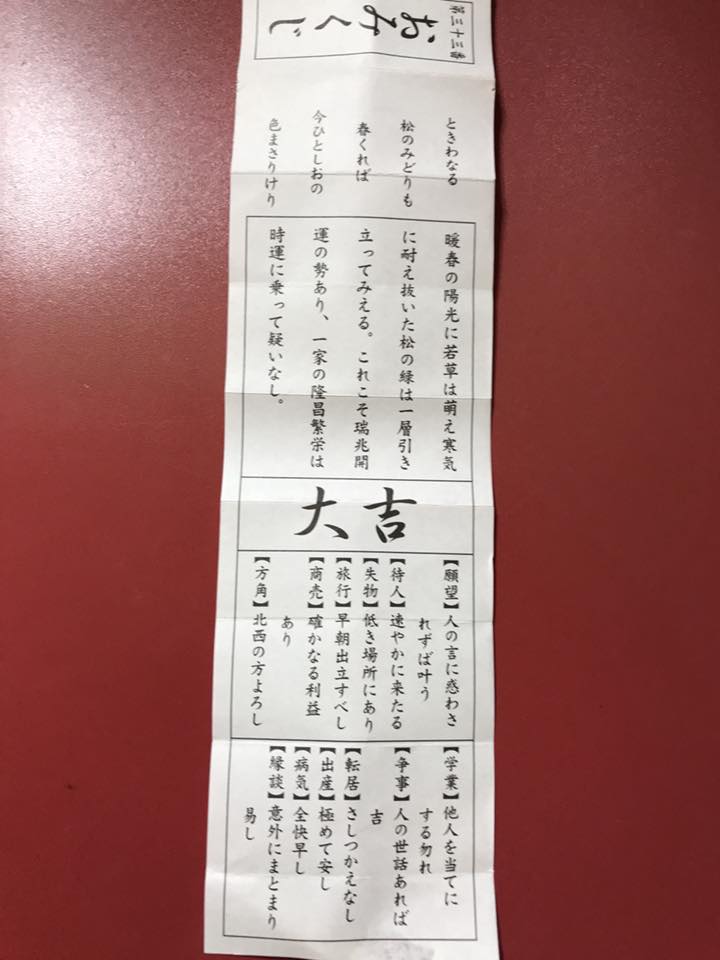 第三十三番
おみくじ
ときわなる
松のみどりも
春くれば
今ひとしおの
色まさりけり
暖春の陽光に若草は萌え寒気
に耐え抜いた松の緑は一層引き
立ってみえる。これこそ瑞兆開
運の勢あり、一家の隆昌繁栄は
時運に乗って疑いなし。
大吉
【願望】人の言に惑わさ
れずば叶う
【待人】速やかに来たる
【失物】低き場所にあり
【旅行】早朝出立すべし
【商売】確かなる利益
あり
【方角】北西の方よろし
【学業】他人を当てに
する勿れ
【争事】人の世話あれば
吉
【転居】さしつかえなし
【出産】極めて安し
【病気】全快早し
【縁談】意外にまとまり
易し